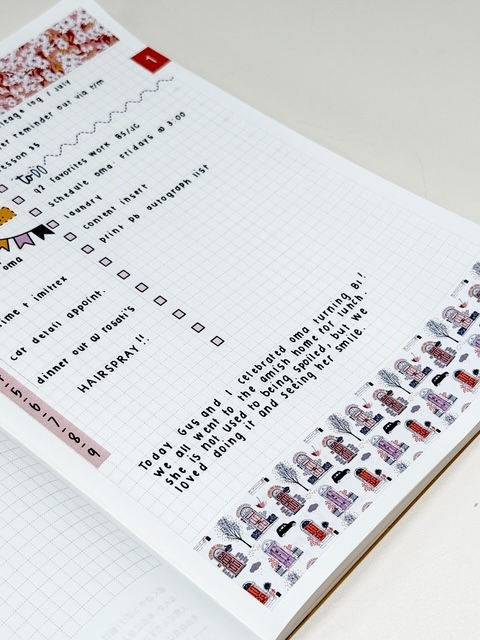 1
log / July
reminder out via t/m
lesson 45
todo
q2 favorites work BS/JG
schedule oma. Fridays @ 3:00
laundry
content insert
print pb autograph list
oma
+ imitrex
car detail appoint.
dinner out @ rosati's
HAIRSPRAY!!
5-6-7-8-9
Today Gus and I celebrated oma turning 81!
we all went to the amish home for lunch.
She is not used to being spoiled, but we
loved doing it and seeing her smile.